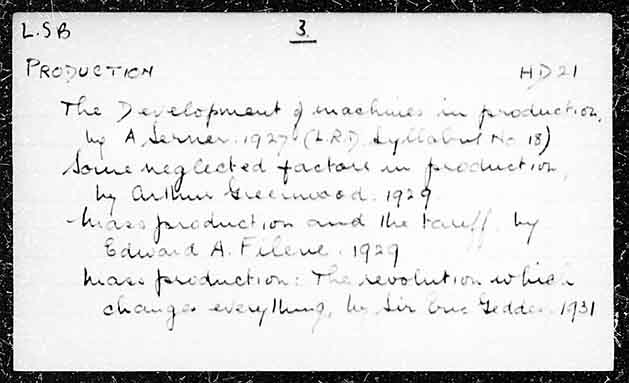 L.S.B
3.
PRODUCTION HD 21
The Development of machines in production,
by A. Lerner. 1927. (L.R.D. Syllabus No 18)
Some neglected factors in production,
by Arthur Greenwood. 1929
Mass production and the tariff, by
Edward A. Filene. 1929
Mass production: The revolution which
changes everything, by Sir Eric Geddes. 1931